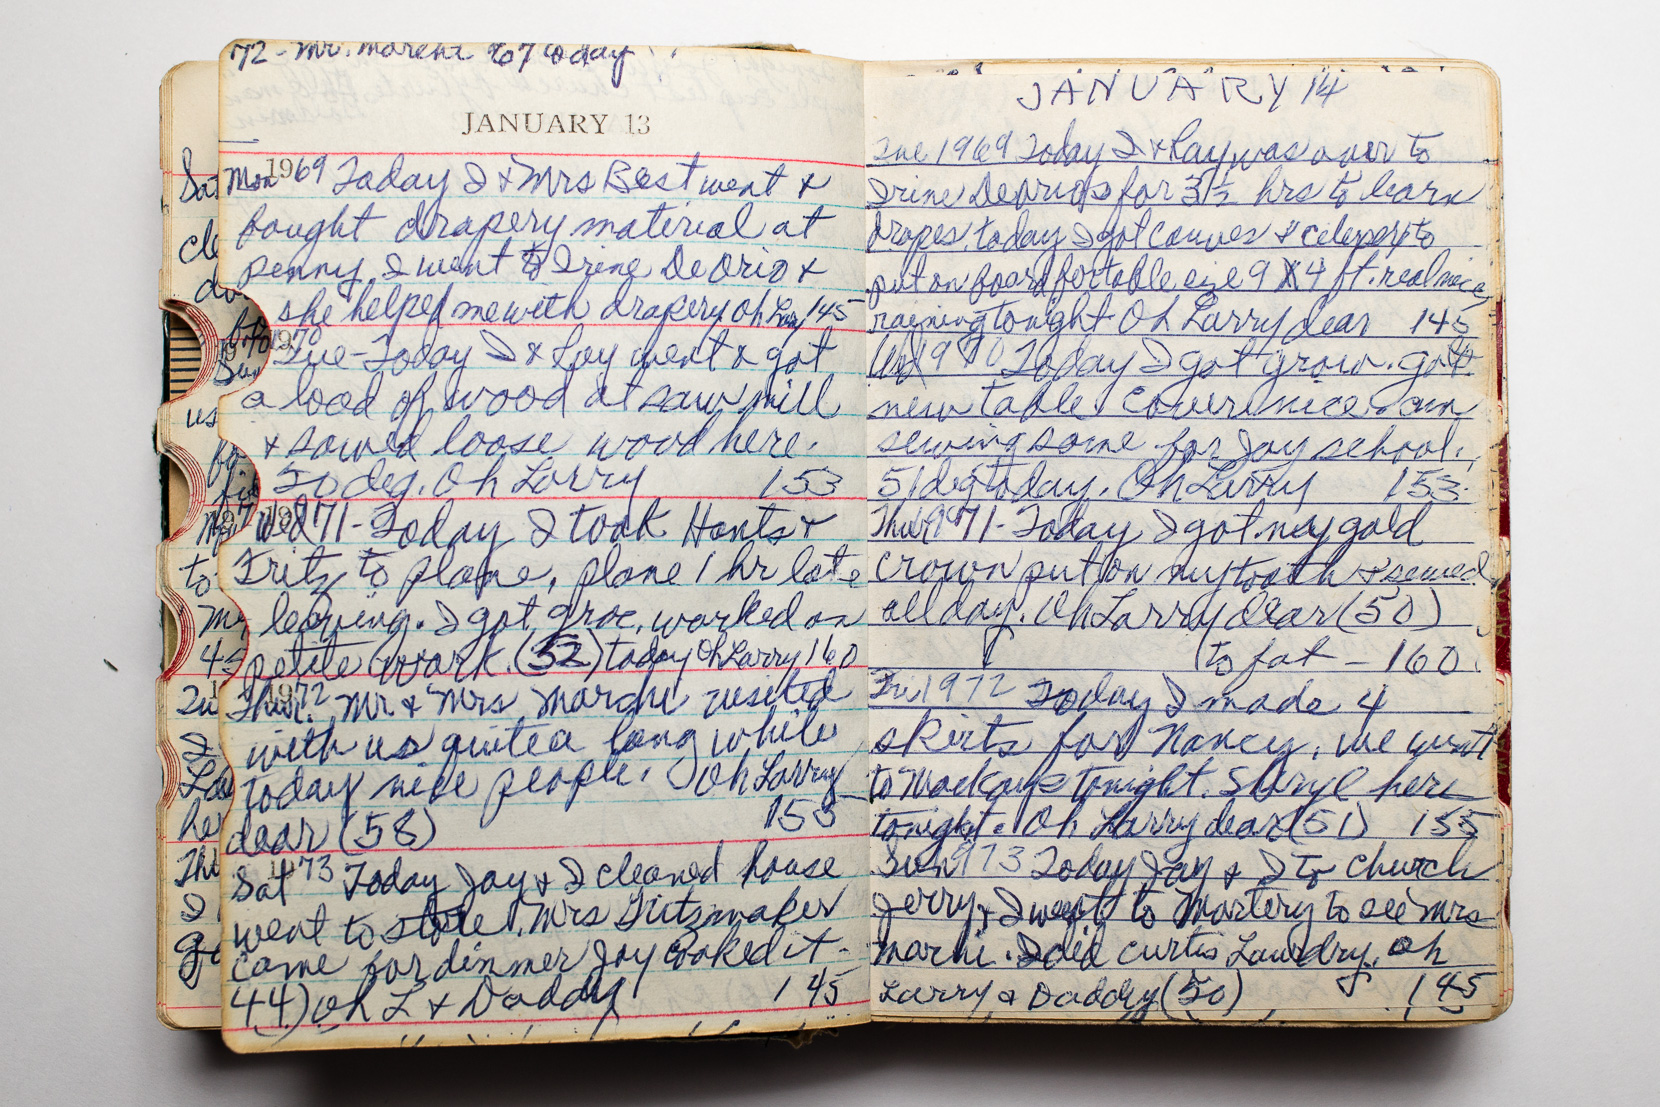 72 - Mr. Marchi 67 today
JANUARY 13
Mon 1969 Today I & Mrs Best went &
bought drapery material at
penny, I went to Irine DeOrio &
she helped me with drapery Oh Larry 145
1970 Tue - Today I & Ray went & got
a load of wood at saw mill
& sawed loose wood here.
50 deg. Oh Larry 153
Wed 1971 - Today I took Hants &
Fritz to plane, plane 1 hr late
leaving. I got groc. worked on
petite work. (52) today Oh Larry 160
Thur. 1972 Mr & Mrs Marchi visited
with us quite a long while
today nice people. Oh Larry
dear (58) 155
Sat 1973 Today Jay & I cleaned house
went to store. Mrs Fritzmaker
came for dinner Jay cooked it -
44) Oh L & Daddy 145
JANUARY 14
Tue 1969 Today I & Ray was over to
Irine DeOrios for 3 1/2 hrs to learn
drapes, today I got canves & to
put on board for table size 9 X 4 ft. real nice
raining tonight Oh Larry dear 145
Wed 1970 Today I got groc. got
new table cover nice & am
sewing some for Jay school.
51 deg today. Oh Larry 153
Thur 1971 - Today I got my gold
crown put on my tooth & sewed
all day. Oh Larry dear (50)
to fat - 160
Fri 1972 Today I made 4
skirts for Nancy, we went
to Mackays tonight. Sheryl here
tonight. Oh Larry dear (51) 155
Sun 1973 Today Jay & I to church
Jerry & I went to Mortery to see Mrs
Marchi. I did curtis Laundry. Oh
Larry & Daddy (50) 145